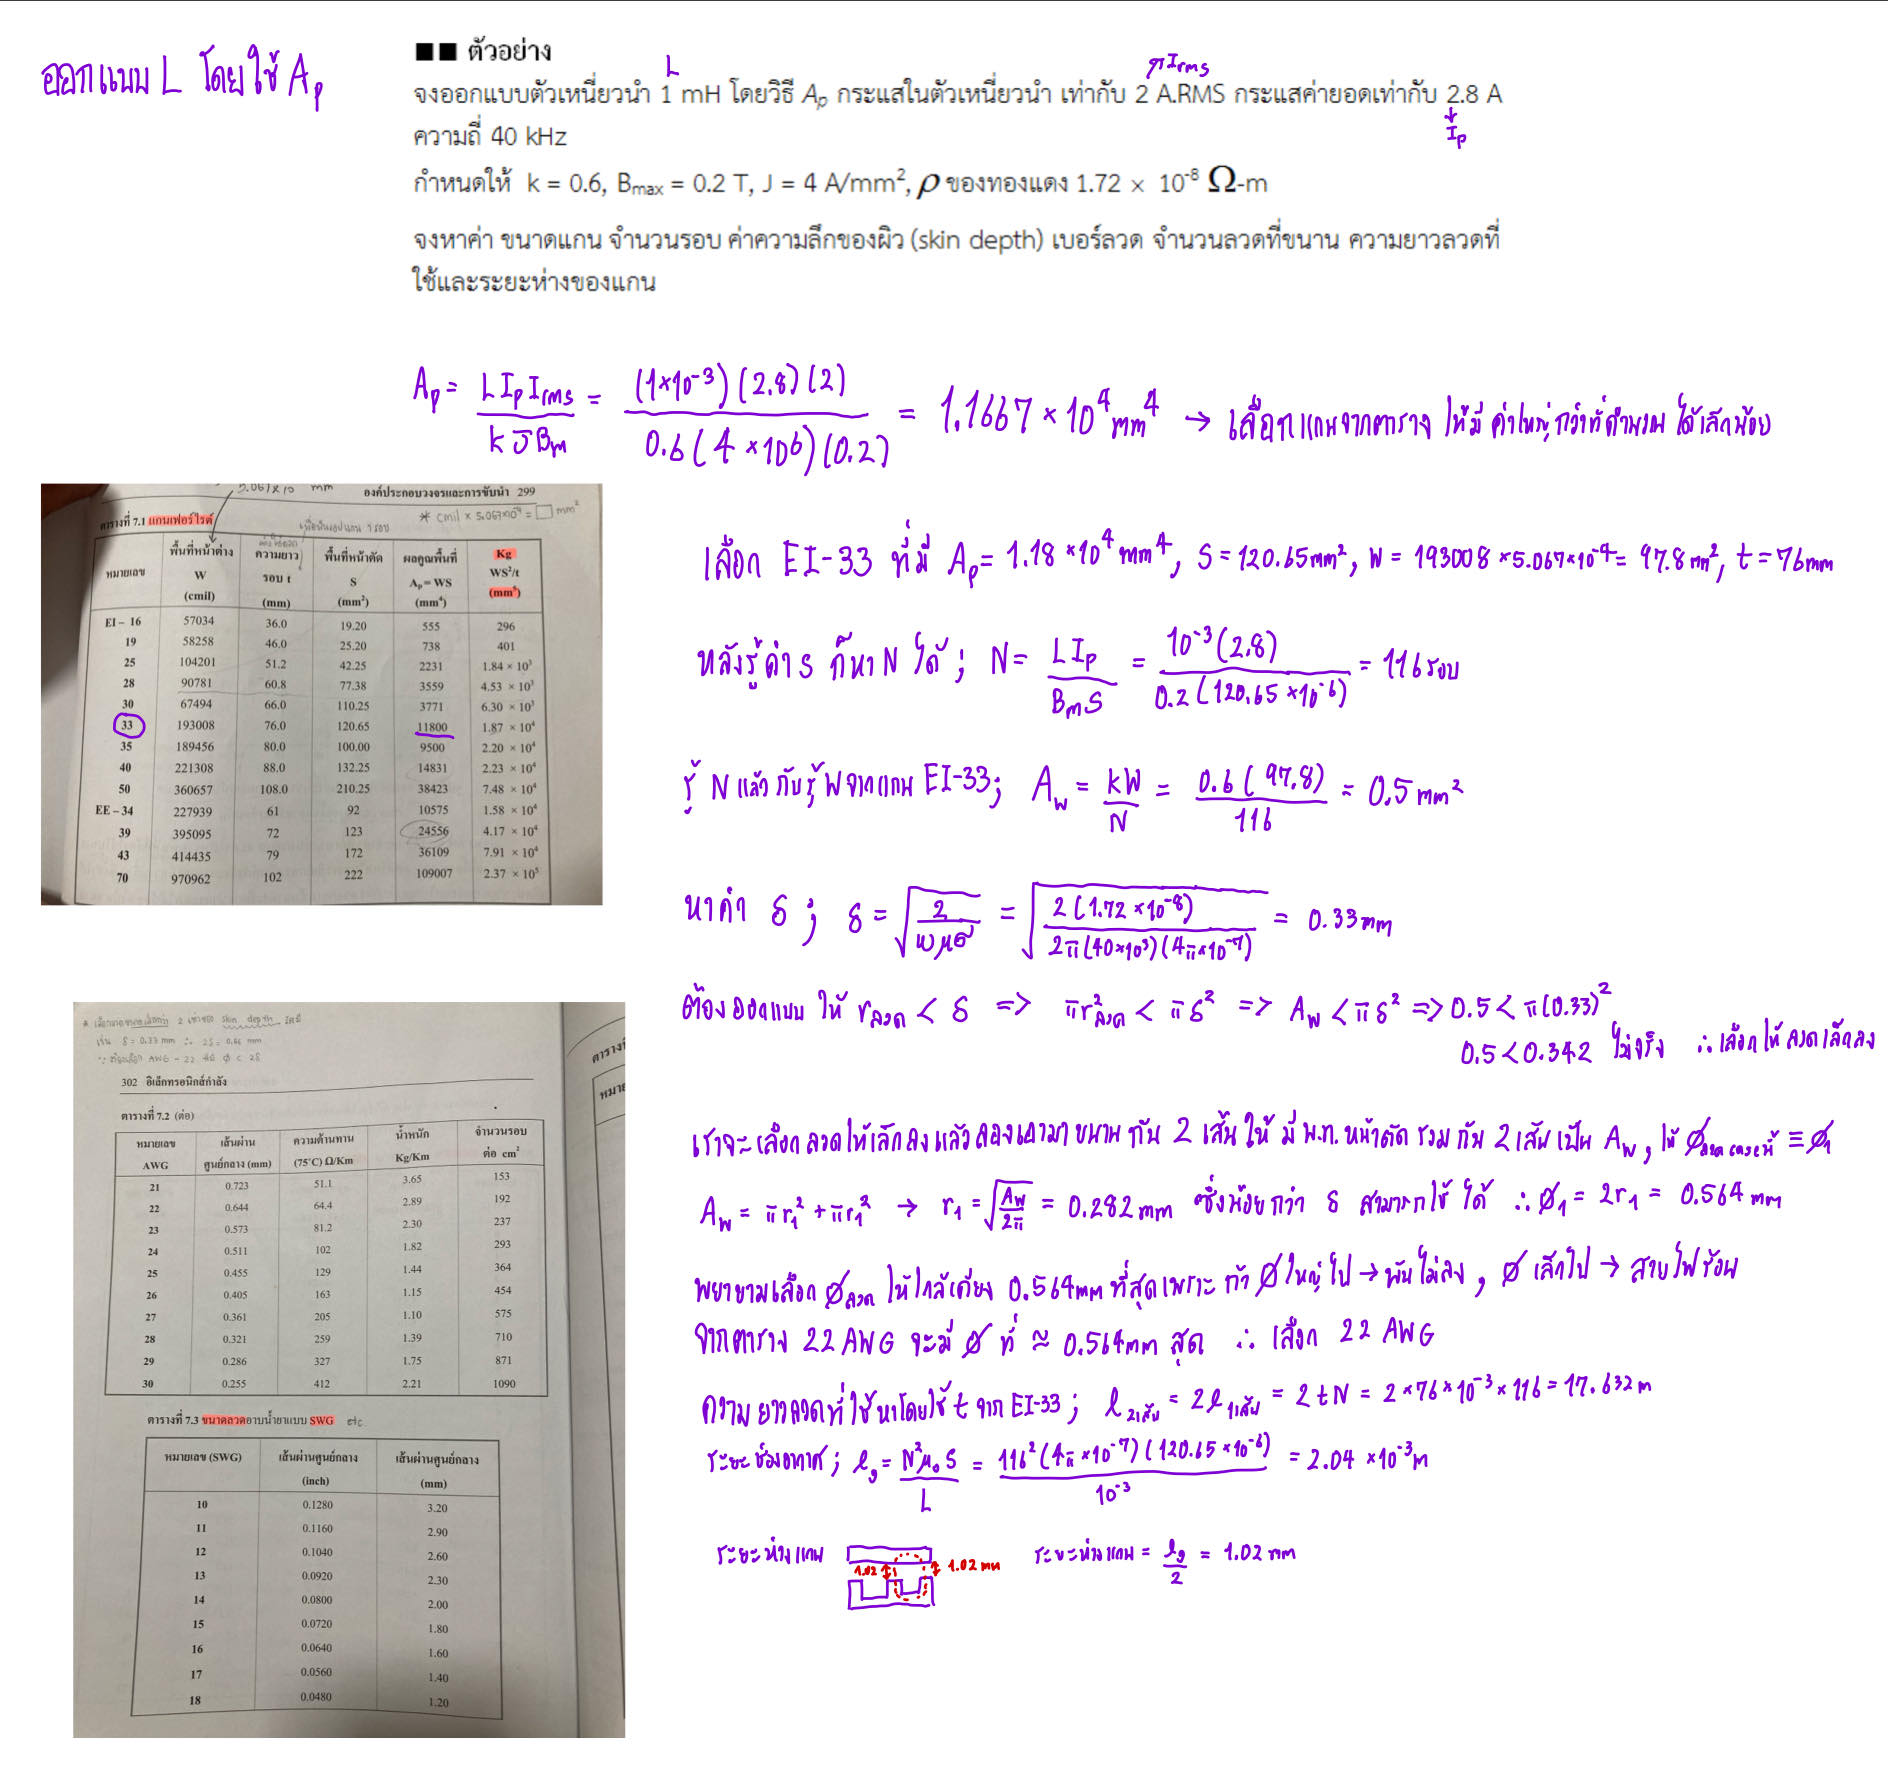 ออกแบบ L โดยใช้ Aₚ
■■ ตัวอย่าง
L
↗Irms
จงออกแบบตัวเหนี่ยวนำ 1 mH โดยวิธี Aₚ กระแสในตัวเหนี่ยวนำ เท่ากับ 2 A.RMS กระแสค่ายอดเท่ากับ 2.8 A
↓ Iₚ
ความถี่ 40 kHz
กำหนดให้ k = 0.6, Bmax = 0.2 T, J = 4 A/mm², ρ ของทองแดง 1.72 × 10⁻⁸ Ω-m
จงหาค่า ขนาดแกน จำนวนรอบ ค่าความลึกของผิว (skin depth) เบอร์ลวด จำนวนลวดที่ขนาน ความยาวลวดที่
ใช้และระยะห่างของแกน
Aₚ = L Iₚ Irms / k J Bm = (1×10⁻³)(2.8)(2) / 0.6(4×10⁶)(0.2) = 1.1667×10⁴ mm⁴ → เลือกแกนจากตาราง ให้มีค่าใหญ่กว่าที่คำนวณได้เล็กน้อย
5.067×10 mm
องค์ประกอบวงจรและการขับนำ 299
* cmil × 5.067×10⁻⁴ = □ mm²
ตารางที่ 7.1 แกนเฟอร์ไรต์
หมายเลข พื้นที่หน้าต่าง W (cmil) ความยาวรอบ t (mm) พื้นที่หน้าตัด S (mm²) ผลคูณพื้นที่ Aₚ = WS (mm⁴) Kg WS²/t (mm⁵)
EI – 16 57034 36.0 19.20 555 296
19 58258 46.0 25.20 738 401
25 104201 51.2 42.25 2231 1.84 × 10³
28 90781 60.8 77.38 3559 4.53 × 10³
30 67494 66.0 110.25 3771 6.30 × 10³
33 193008 76.0 120.65 11800 1.87 × 10⁴
35 189456 80.0 100.00 9500 2.20 × 10⁴
40 221308 88.0 132.25 14831 2.23 × 10⁴
50 360657 108.0 210.25 38423 7.48 × 10⁴
EE – 34 227939 61 92 10575 1.58 × 10⁴
39 395095 72 123 24556 4.17 × 10⁴
43 414435 79 172 36109 7.91 × 10⁴
70 970962 102 222 109007 2.37 × 10⁵
เลือก EI-33 ที่มี Aₚ = 1.18×10⁴ mm⁴, S = 120.65 mm², W = 193008×5.067×10⁻⁴ = 97.8 mm², t = 76 mm
หลังรู้ค่า S ก็หา N ได้ ; N = L Iₚ / Bm S = 10⁻³(2.8) / 0.2(120.65×10⁻⁶) = 116 รอบ
รู้ N แล้ว กับรู้ W จากแกน EI-33; Aw = kW / N = 0.6(97.8) / 116 = 0.5 mm²
หาค่า δ ; δ = √(2 / ωμσ) = √(2(1.72×10⁻⁸) / 2π(40×10³)(4π×10⁻⁷)) = 0.33 mm
ต้องออกแบบ ให้ rลวด < δ => πr²ลวด < πδ² => Aw < πδ² => 0.5 < π(0.33)²
0.5 < 0.342 ไม่จริง ∴ เลือกให้ลวดเล็กลง
เราจะเลือก ลวดให้เล็กลงแล้วลองเอามาขนานกัน 2 เส้น ให้ มี พ.ท. หน้าตัด รวมกัน 2 เส้นเป็น Aw, ให้ ∅ลวด caseนี้ ≡ ∅₁
Aw = πr₁² + πr₁² → r₁ = √(Aw / 2π) = 0.282 mm ซึ่งน้อยกว่า δ สามารถใช้ได้ ∴ ∅₁ = 2r₁ = 0.564 mm
พยายามเลือก ∅ลวด ให้ใกล้เคียง 0.564mm ที่สุดเพราะ ถ้า ∅ใหญ่ไป → พันไม่ลง, ∅ เล็กไป → สายไฟร้อน
จากตาราง 22 AWG จะมี ∅ ที่ ≈ 0.564mm สุด ∴ เลือก 22 AWG
ความยาวลวดที่ใช้หาโดยใช้ t จาก EI-33; l2เส้น = 2l1เส้น = 2tN = 2×76×10⁻³×116 = 17.632 m
ระยะช่องอากาศ; lg = N²μ₀S / L = 116²(4π×10⁻⁷)(120.65×10⁻⁶) / 10⁻³ = 2.04×10⁻³ m
ระยะห่างแกน 1.02 1.02 mm ระยะห่างแกน = lg / 2 = 1.02 mm
* เลือกลวด 2 เท่าของ skin depth
เช่น δ = 0.33 mm ∴ 2δ = 0.66 mm
∵ ต้องเลือก AWG - 22 ที่มี ∅ < 2δ
302 อิเล็กทรอนิกส์กำลัง
ตารางที่ 7.2 (ต่อ)
หมายเลข AWG เส้นผ่านศูนย์กลาง (mm) ความต้านทาน (75°C) Ω/Km น้ำหนัก Kg/Km จำนวนรอบต่อ cm²
21 0.723 51.1 3.65 153
22 0.644 64.4 2.89 192
23 0.573 81.2 2.30 237
24 0.511 102 1.82 293
25 0.455 129 1.44 364
26 0.405 163 1.15 454
27 0.361 205 1.10 575
28 0.321 259 1.39 710
29 0.286 327 1.75 871
30 0.255 412 2.21 1090
ตารางที่ 7.3 ขนาดลวดอาบน้ำยาแบบ SWG etc.
หมายเลข (SWG) เส้นผ่านศูนย์กลาง (inch) เส้นผ่านศูนย์กลาง (mm)
10 0.1280 3.20
11 0.1160 2.90
12 0.1040 2.60
13 0.0920 2.30
14 0.0800 2.00
15 0.0720 1.80
16 0.0640 1.60
17 0.0560 1.40
18 0.0480 1.20
ตารางที่
หมาย